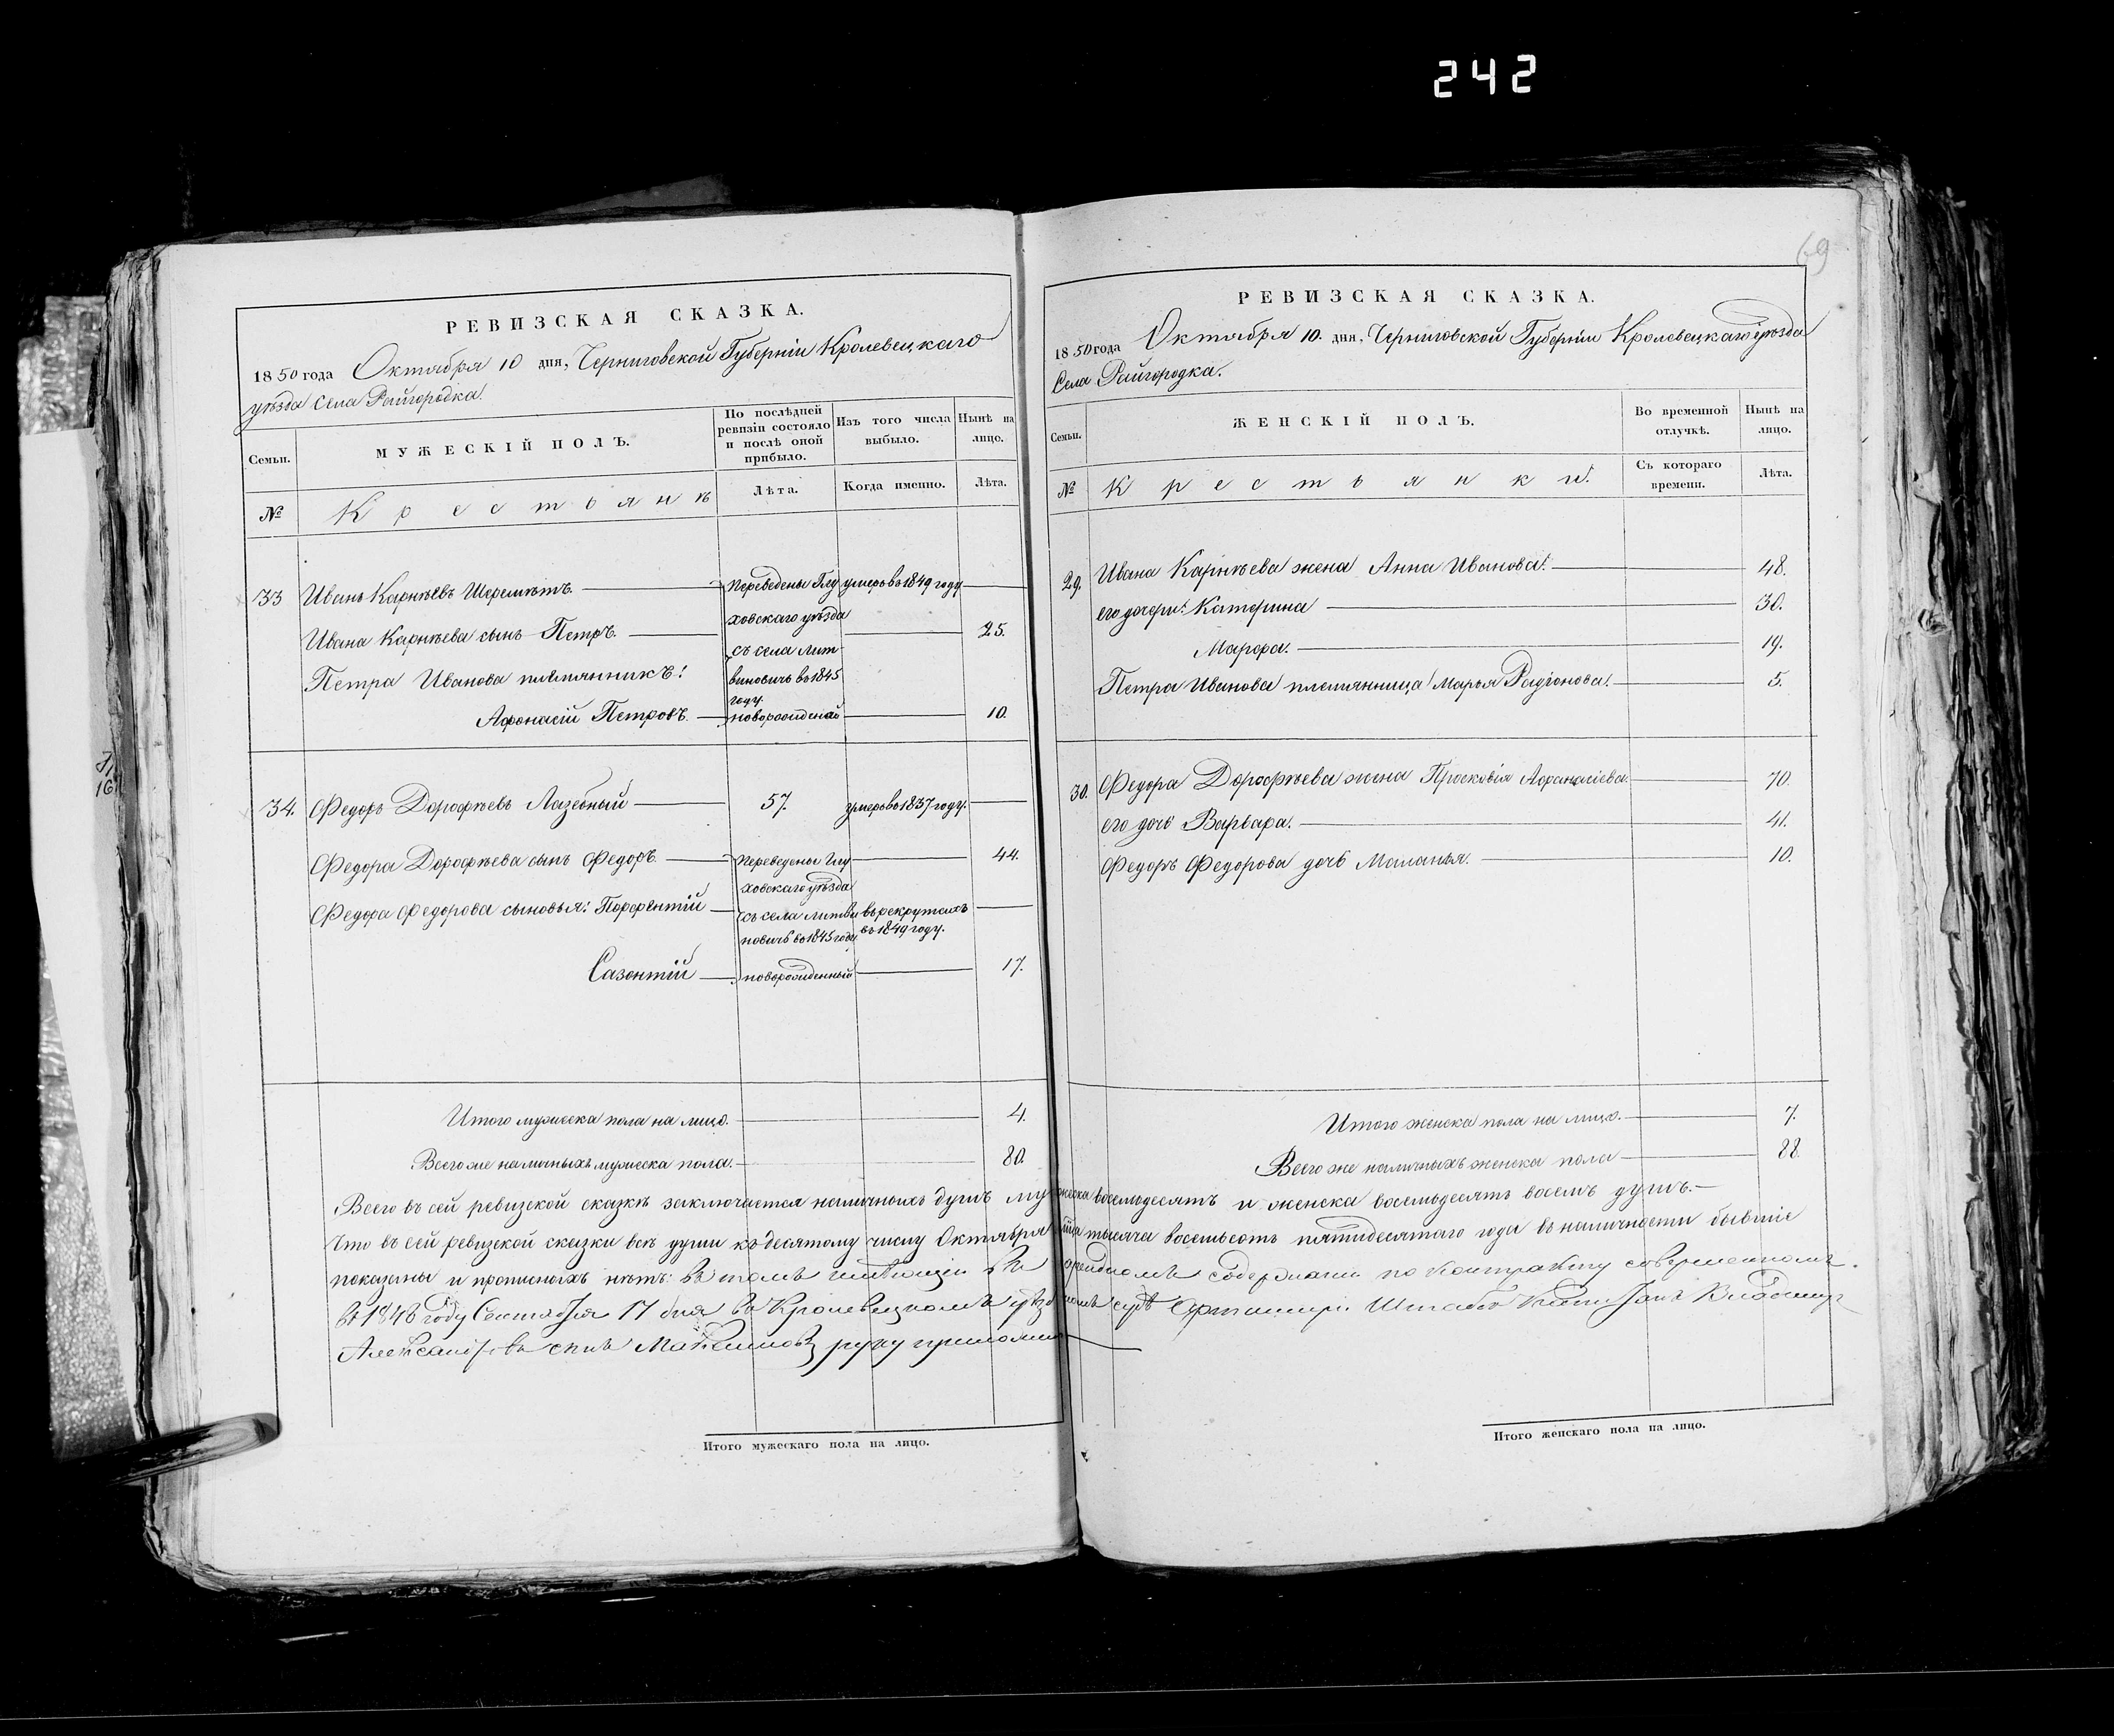 242
69
РЕВИЗСКАЯ СКАЗКА.
1850 года Октября 10 дня, Черниговской Губерніи Кролевецкаго
уѣзда Села Райгородка.
Семьи.
МУЖЕСКІЙ ПОЛЪ.
По послѣдней ревизіи состояло и послѣ оной прибыло.
Изъ того числа выбыло.
Нынѣ на лицо.
№
Крестьянъ
Лѣта.
Когда именно.
Лѣта.
33 Иванъ Карнѣевъ Шереметъ. Переведены Глу умеръ въ 1849 году
ховскаго уѣзда
Ивана Карнѣева сынъ Петръ. 25.
съ села Лит
Петра Иванова племянникъ: виновичь въ 1845
году.
Афонасій Петровъ. новорожденой 10.
34. Федоръ Дорофѣевъ Лазебный 57. умеръ въ 1837 году.
Федора Дорофѣева сынъ Федоръ. Переведены Глу 44.
ховскаго уѣзда
Федора Федорова сыновья: Порфентій съ села Литви въ рекрутахъ
новичь въ 1845 году въ 1849 году.
Сазонтій новорожденный 17.
Итого мужеска пола на лицо. 4.
Всего же наличныхъ мужеска пола. 80.
Итого мужескаго пола на лицо.
РЕВИЗСКАЯ СКАЗКА.
1850 года Октября 10. дня, Черниговской Губерніи Кролевецкаго уѣзда
Села Райгородка.
Семьи.
ЖЕНСКІЙ ПОЛЪ.
Во временной отлучкѣ.
Нынѣ на лицо.
№
Крестьянки.
Съ котораго времени.
Лѣта.
29. Ивана Карнѣева жена Анна Иванова. 48.
его дочери: Катерина 30.
Марфа. 19.
Петра Иванова племянница Марья Радіонова. 5.
30. Федора Дорофѣева жена Просковія Афанасіева. 70.
его дочь Варвара. 41.
Федоръ Федорова дочь Маланья. 10.
Итого женска пола на лицо. 7.
Всего же наличныхъ женска пола 88.
Всего въ сей ревизской сказкѣ заключается наличныхъ душъ мужеска восемьдесятъ и женска восемьдесятъ восемь душъ.
Что въ сей ревизской сказки всѣ души къ десятому числу Октября тысяча восемьсотъ пятидесятаго года въ наличности бывшіе
показаны и прописныхъ нѣтъ: въ томъ имѣющіи въ орендномъ содержаніи по контракту совершенномъ
въ 1848 году Сентября 17 дня въ Кролевецкомъ уѣздномъ судѣ Штабсъ Владимир
Александровъ сынъ руку приложилъ
Итого женскаго пола на лицо.